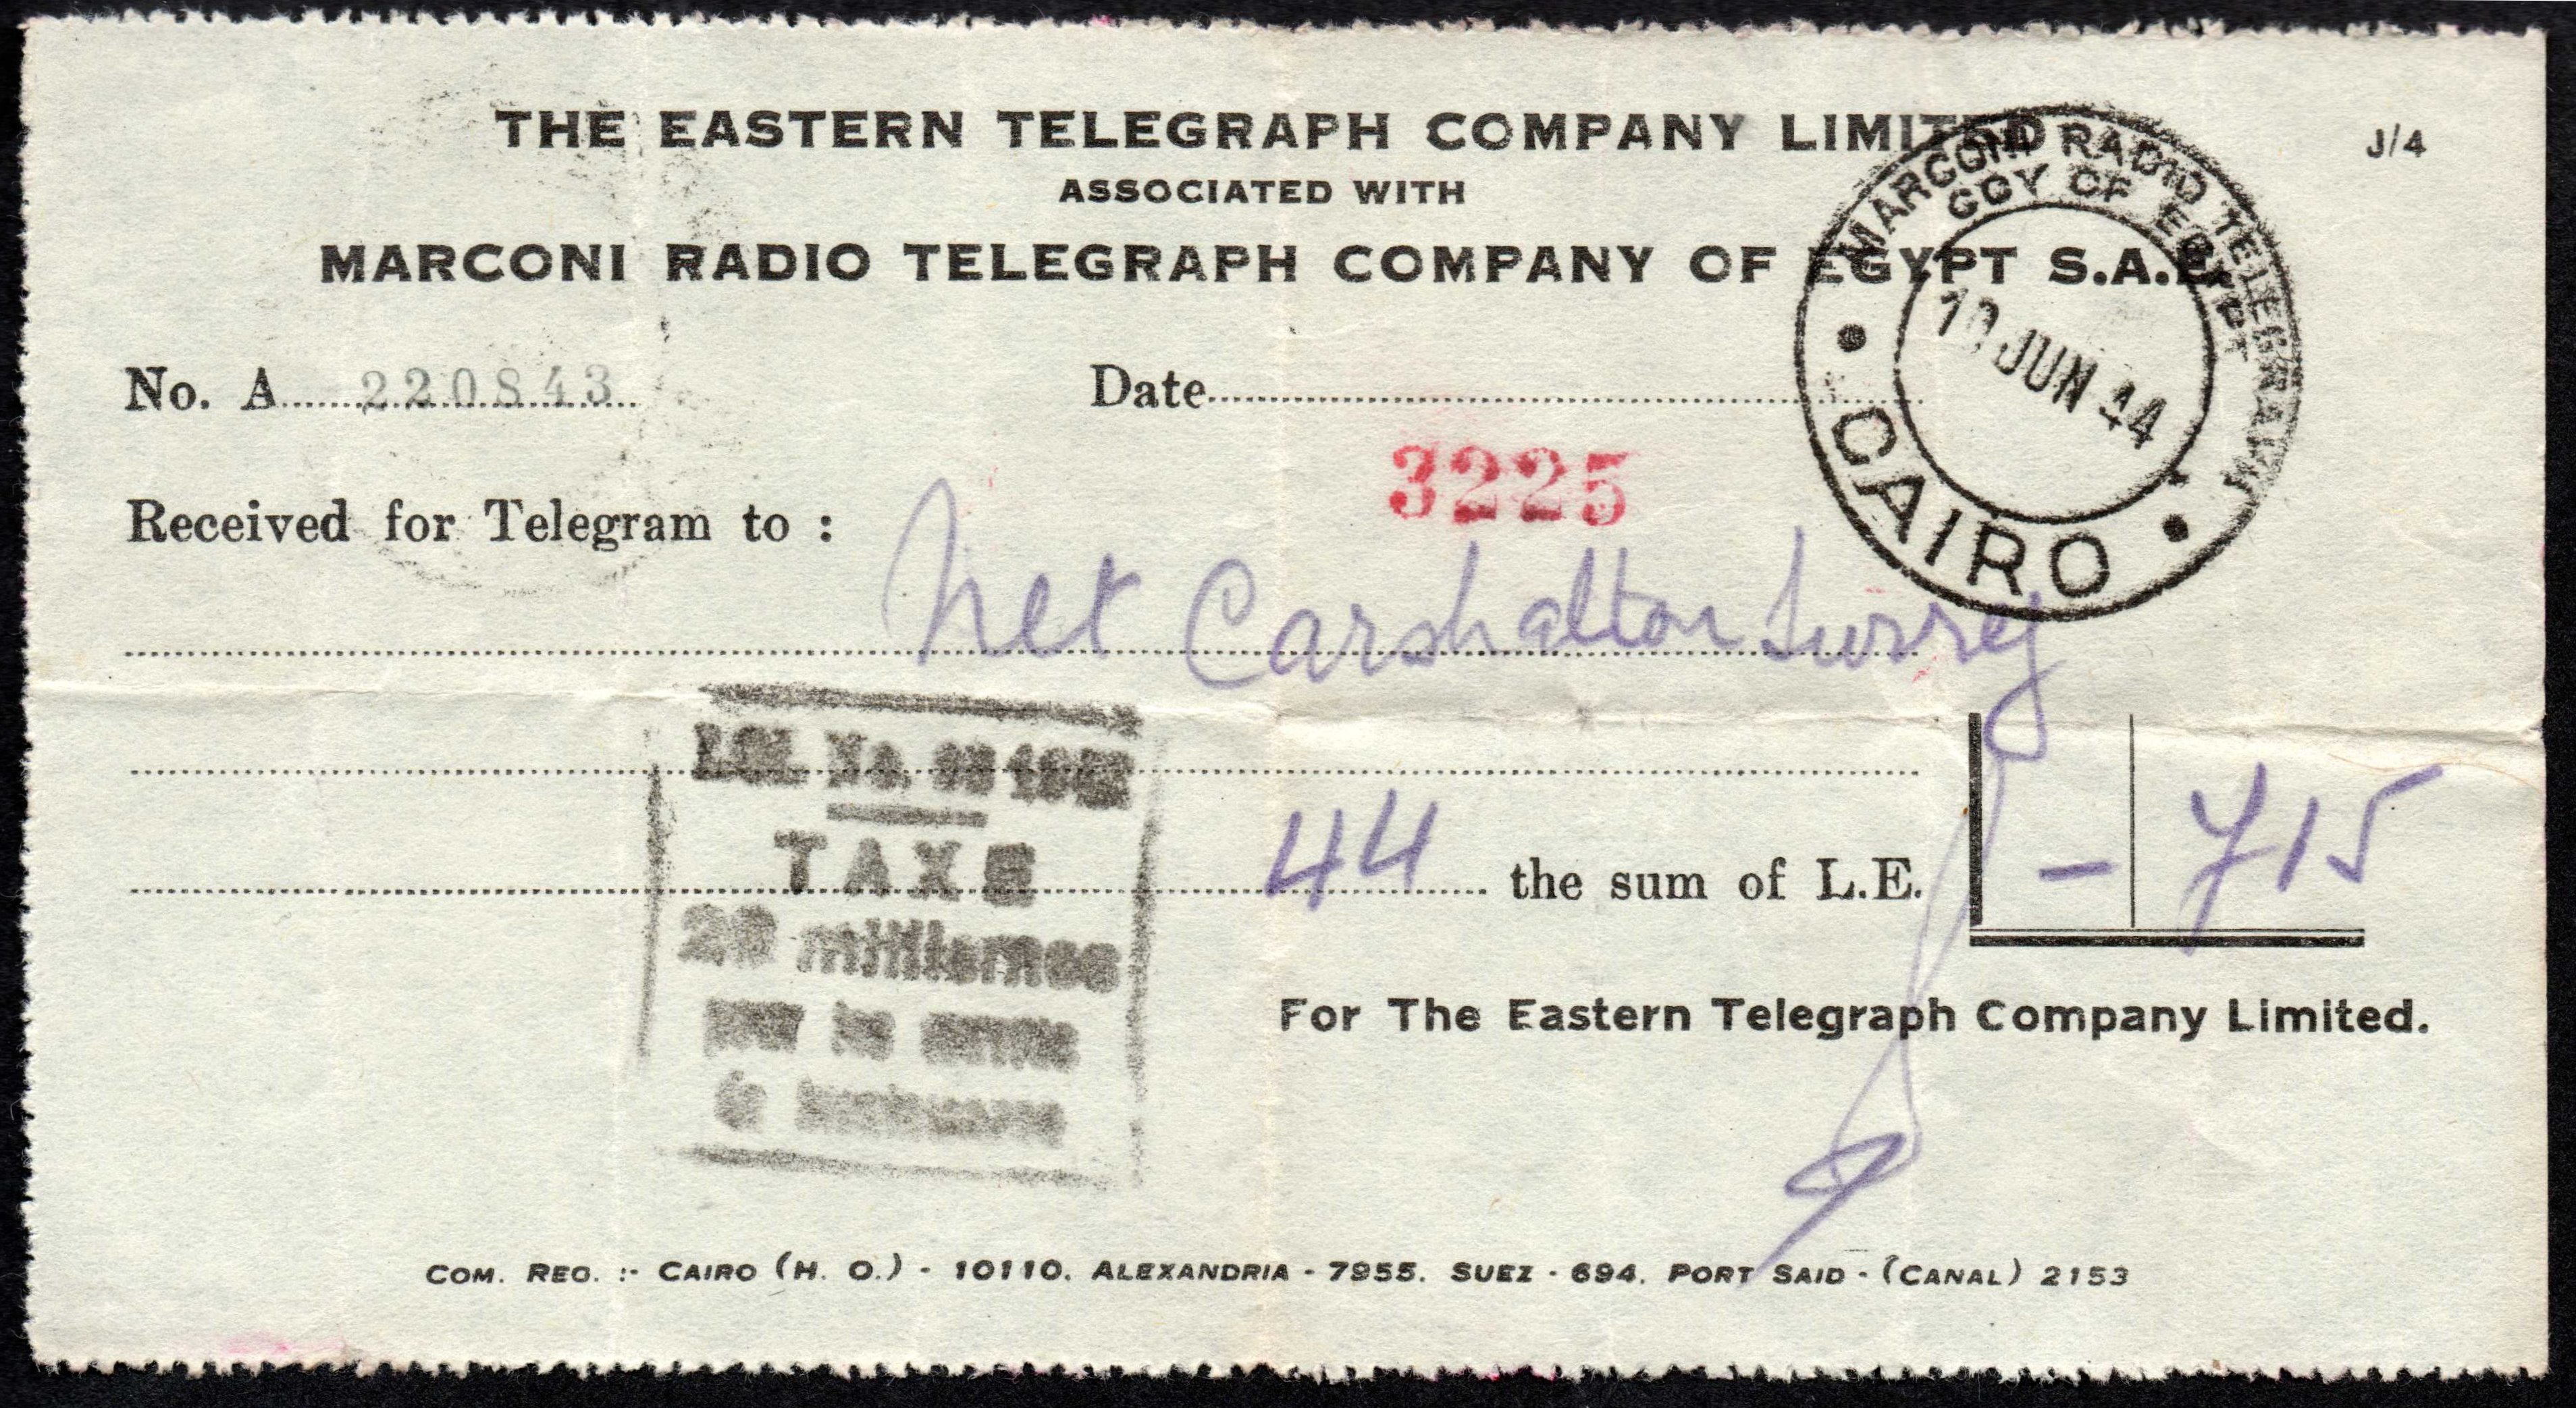 THE EASTERN TELEGRAPH COMPANY LIMITED
J/4
ASSOCIATED WITH
MARCONI RADIO TELEGRAPH COMPANY OF EGYPT S.A.E.
MARCONI RADIO TELEGRAPH
COY OF EGYPT
JUN 44
CAIRO
No. A 220843
Date
3225
Received for Telegram to :
Carshalton Surrey
No.
TAXE
20 millièmes
44 the sum of L.E. - 715
For The Eastern Telegraph Company Limited.
COM. REG. :- CAIRO (H. O.) - 10110. ALEXANDRIA - 7955. SUEZ - 694. PORT SAID - (CANAL) 2153